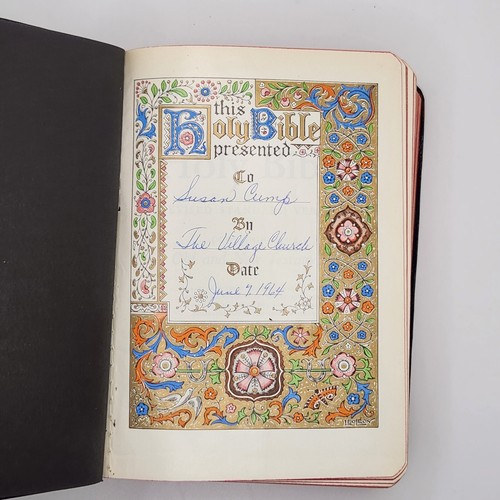 this
Holy Bible
presented
To
Susan Cump
By
The Village Church
Date
June 7, 1964